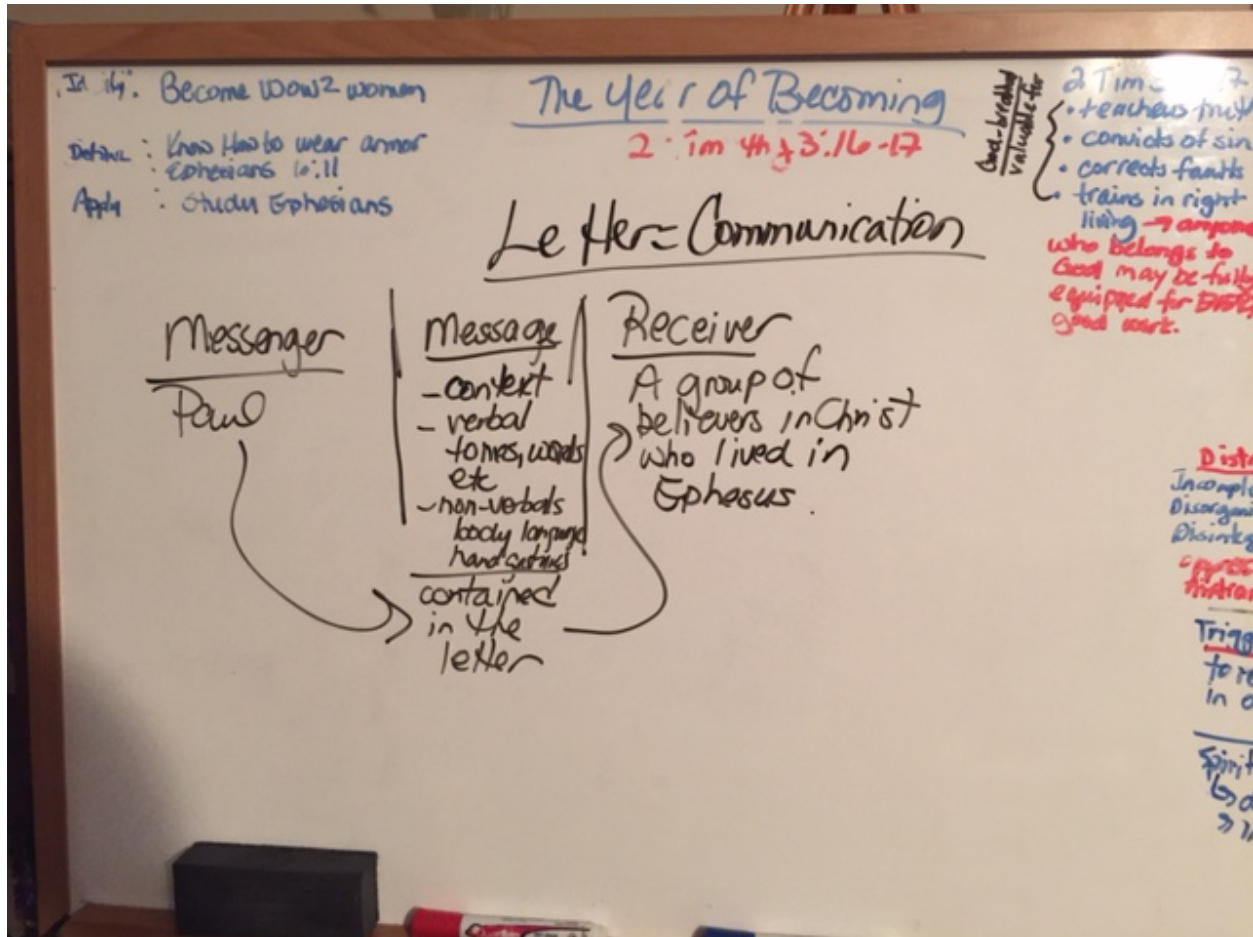 Become WOW2 women
Know How to wear armor
: Ephesians 6:11
Apply : Study Ephesians
The Year of Becoming
3:16-17
God-breathed
valuable for
2 Tim
• teaches
• convicts of sin
• corrects faults
• trains in right
living →
who belongs to
God may be fully
equipped for
good work.
Letter = Communication
Messenger
Paul
Message
- context
- verbal
tones, words
etc
- non-verbals
body language
hand gestures
contained
in the
letter
Receiver
A group of
believers in Christ
who lived in
Ephesus.
Dista
Incomple
Disorgan
Trigg
to re
in a
Spirit